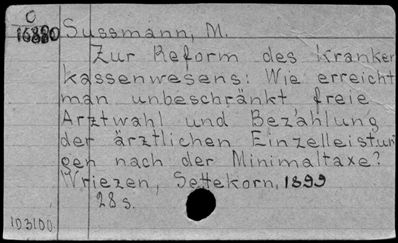 O
16880
Sussmann, M.
Zur Reform des Kranken
kassenwesens: Wie erreicht
man unbeschränkt freie
Arztwahl und Bezahlung
der ärztlichen Einzelleistun
gen nach der Minimaltaxe?
Wriezen, Settekorn, 1899
28 s.
103100